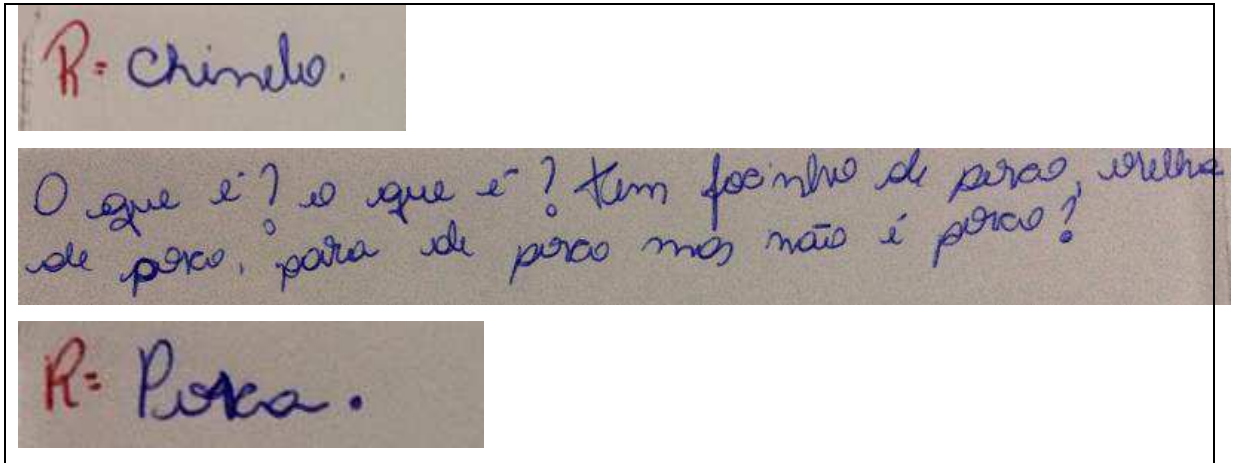 R= Chinelo.
O que é? o que é? tem focinho de porco, orelha
de porco, pata de porco mas não é porco?
R= Porca.